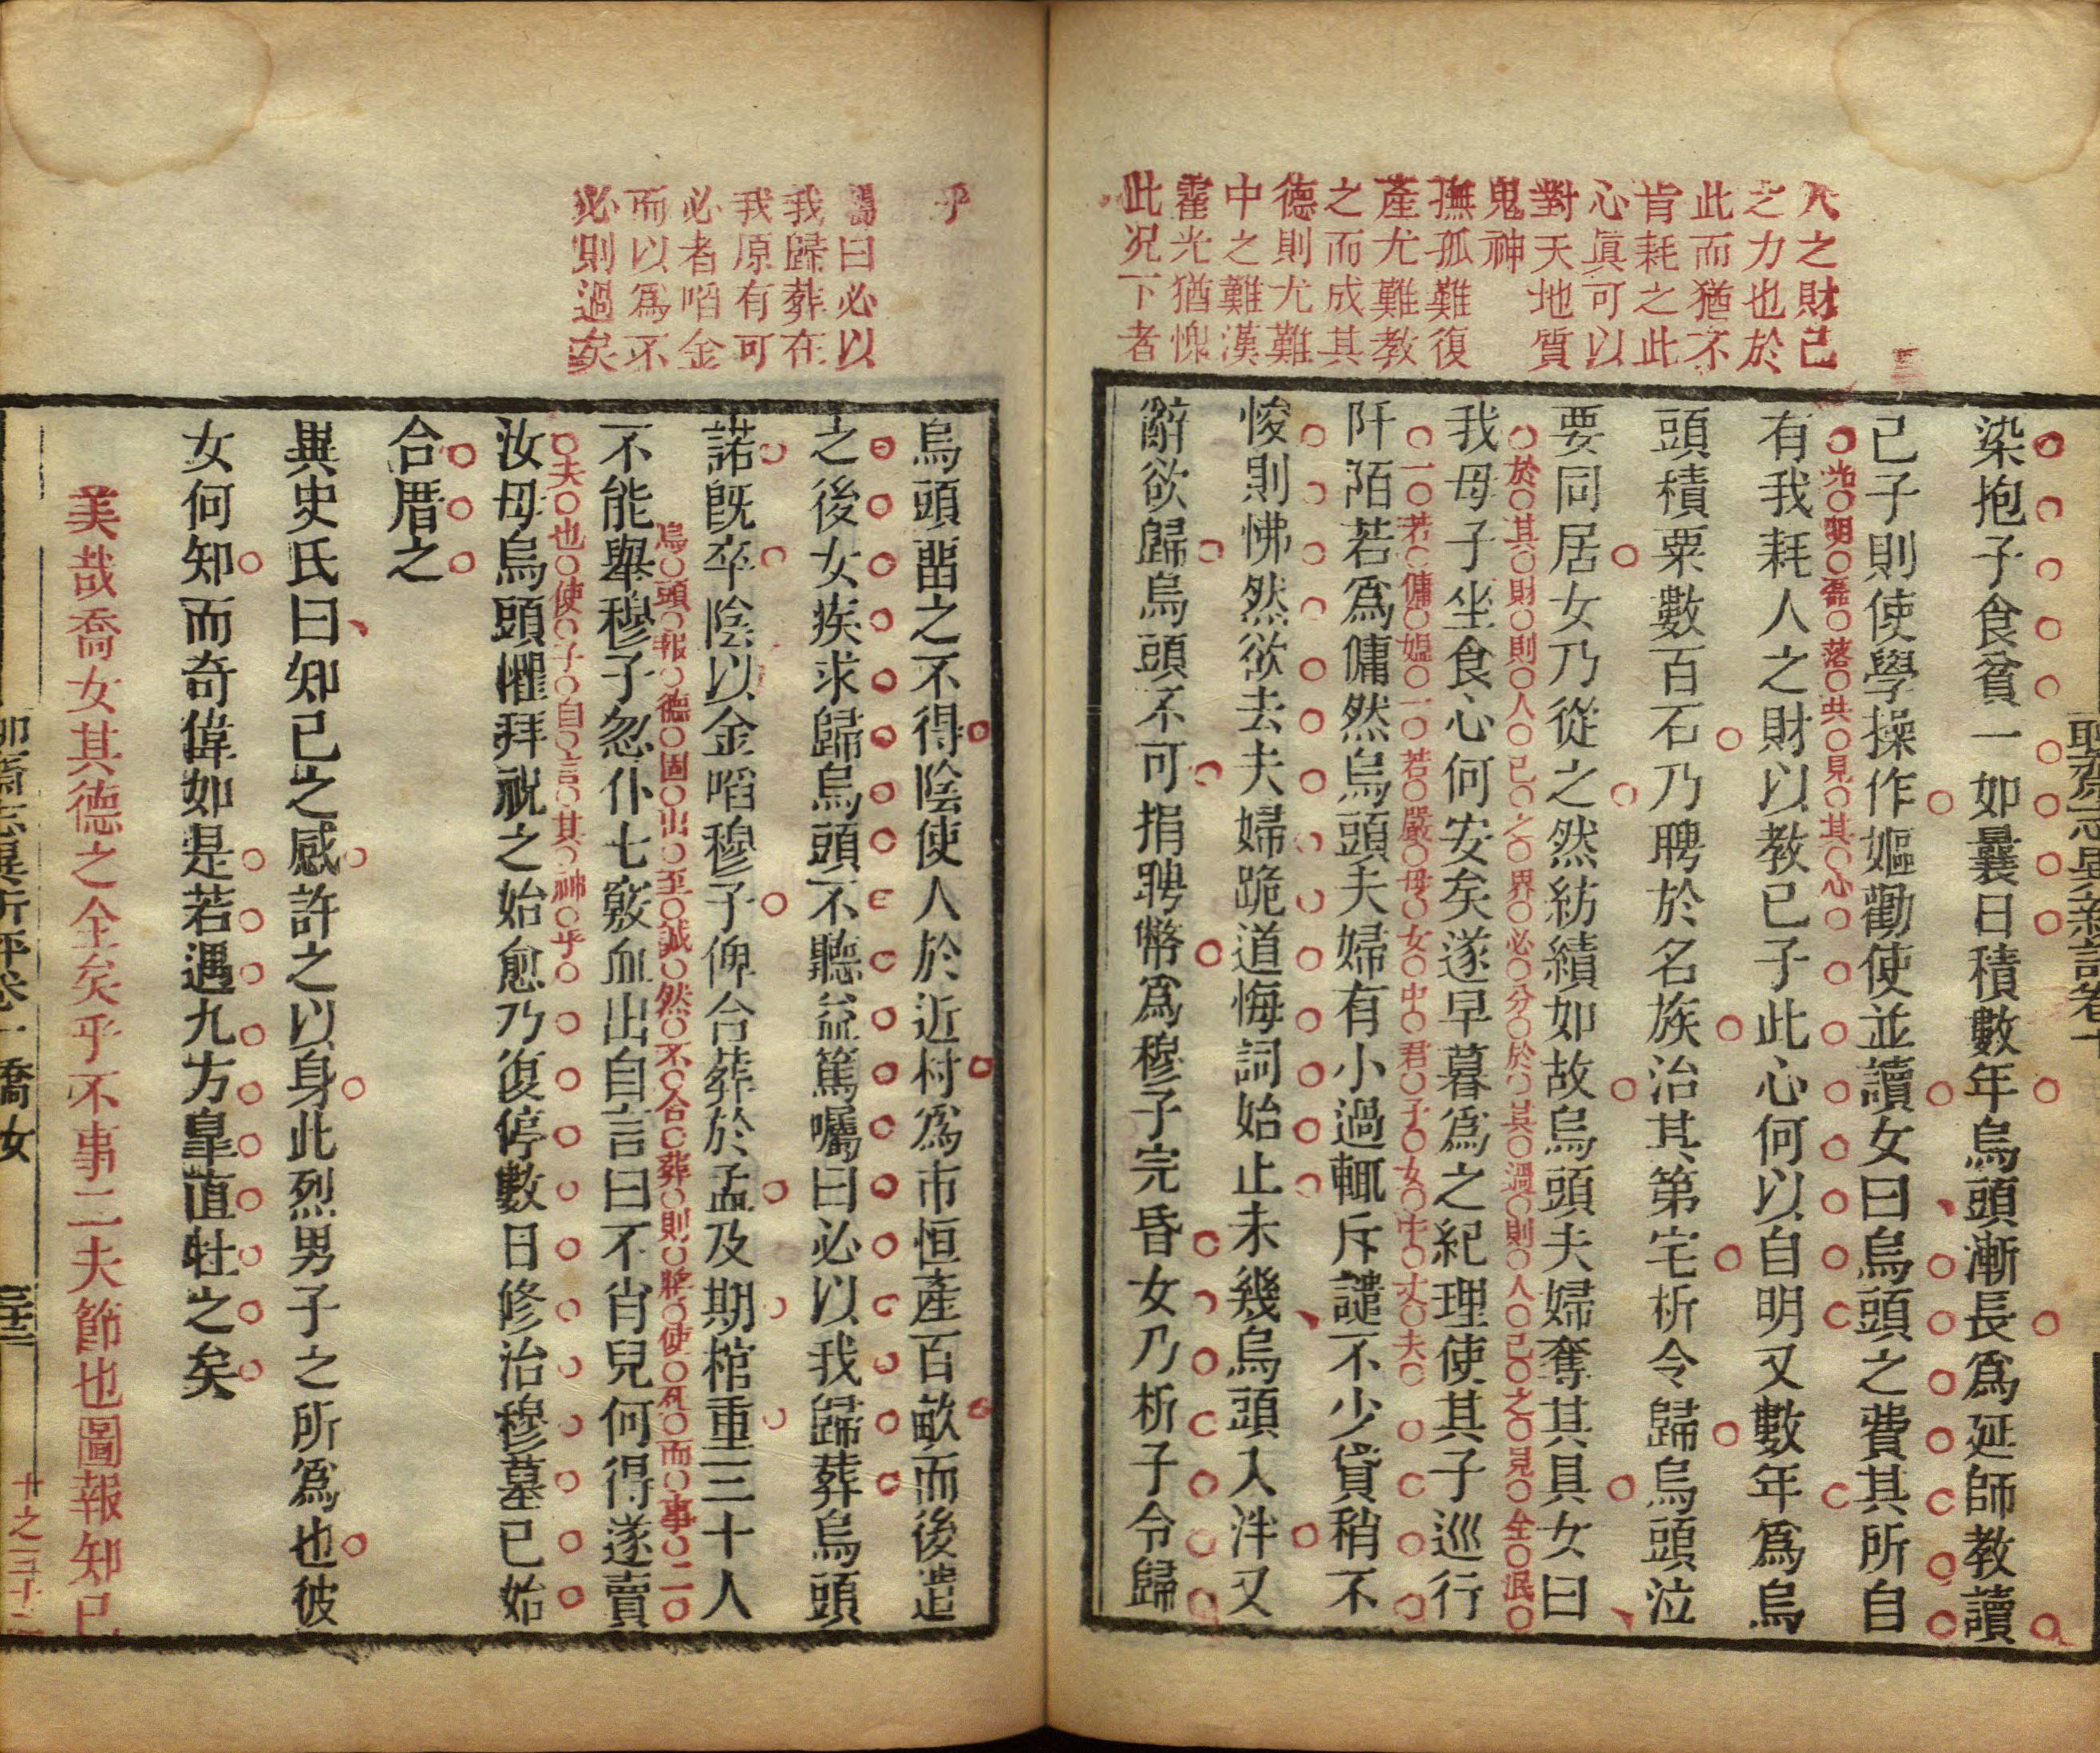 聊齋志異新評卷十
人之財己
之力也於
此而猶不
肯耗之此
心眞可以
對天地質
鬼神
撫孤難復
產尤難教
之而成其
德則尤難
中之難漢
霍光猶愧
此况下者
染抱子食貧一如曩日積數年烏頭漸長爲延師教讀
己子則使學操作嫗勸使並讀女曰烏頭之費其所自
有我耗人之財以教己子此心何以自明又數年爲烏
光明磊落共見其心
頭積粟數百石乃聘於名族治其第宅析令歸烏頭泣
要同居女乃從之然紡績如故烏頭夫婦奪其具女曰
我母子坐食心何安矣遂早暮爲之紀理使其子巡行
於其財則人己之界必分於其過則人己之見全泯
阡陌若爲傭然烏頭夫婦有小過輒斥譴不少貸稍不
一若傭媼一若嚴母女中君子女中丈夫
悛則怫然欲去夫婦跪道悔詞始止未幾烏頭入泮又
辭欲歸烏頭不可捐聘幣爲穆子完昏女乃析子令歸
乎
曰必以
我歸葬在
我原有可
必者啗金
而以爲不
必則過矣
烏頭留之不得陰使人於近村爲市恒產百畝而後遣
之後女疾求歸烏頭不聽益篤囑曰必以我歸葬烏頭
諾旣卒陰以金啗穆子俾合葬於孟及期棺重三十人
不能舉穆子忽仆七竅血出自言曰不肖兒何得遂賣
烏頭報德固出至誠然不合葬則將使死而事二
汝母烏頭懼拜祝之始愈乃復停數日修治穆墓已始
夫也使子自言其神乎
合厝之
異史氏曰知己之感許之以身此烈男子之所爲也彼
女何知而奇偉如是若遇九方皐直牡之矣
美哉喬女其德之全矣乎不事二夫節也圖報知己
聊齋志異新評卷十 喬女